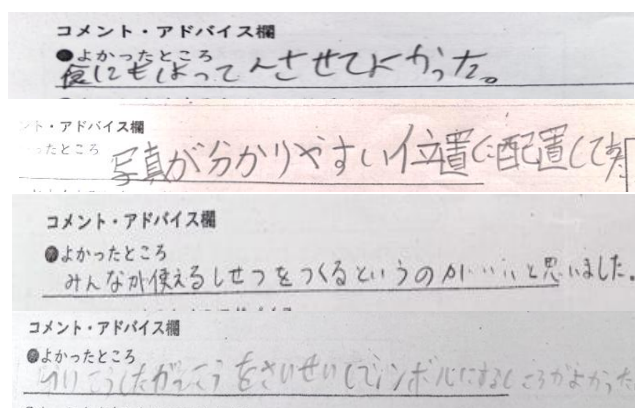 コメント・アドバイス欄
●よかったところ
食にもはってんさせてよかった。
ント・アドバイス欄
ったところ
写真が分かりやすい位置に配置してあ
コメント・アドバイス欄
●よかったところ
みんなが使えるしせつをつくるというのがいいと思いました。
コメント・アドバイス欄
●よかったところ
がっこうをさいせいしてシンボルにするところがよかった